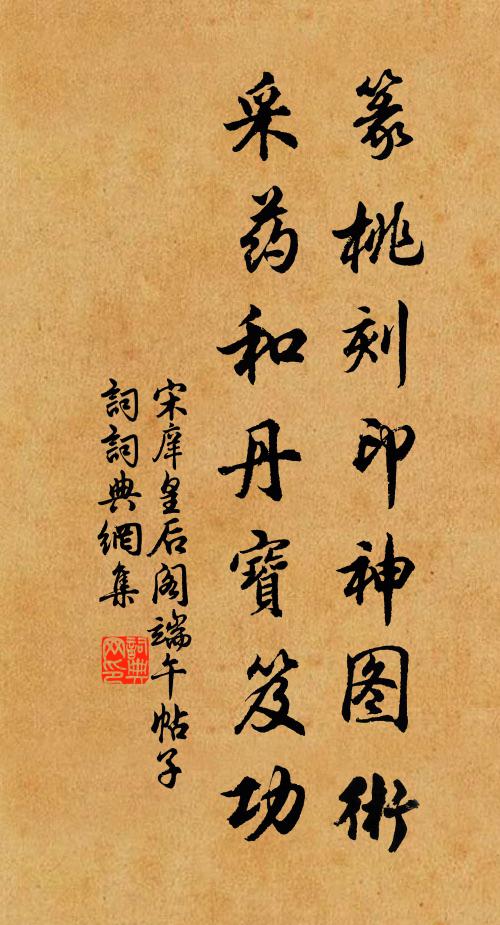 篆桃刻印神图術
采药和丹寶笈功
宋庠皇后阁端午帖子
詞詞典網集
詞典网印